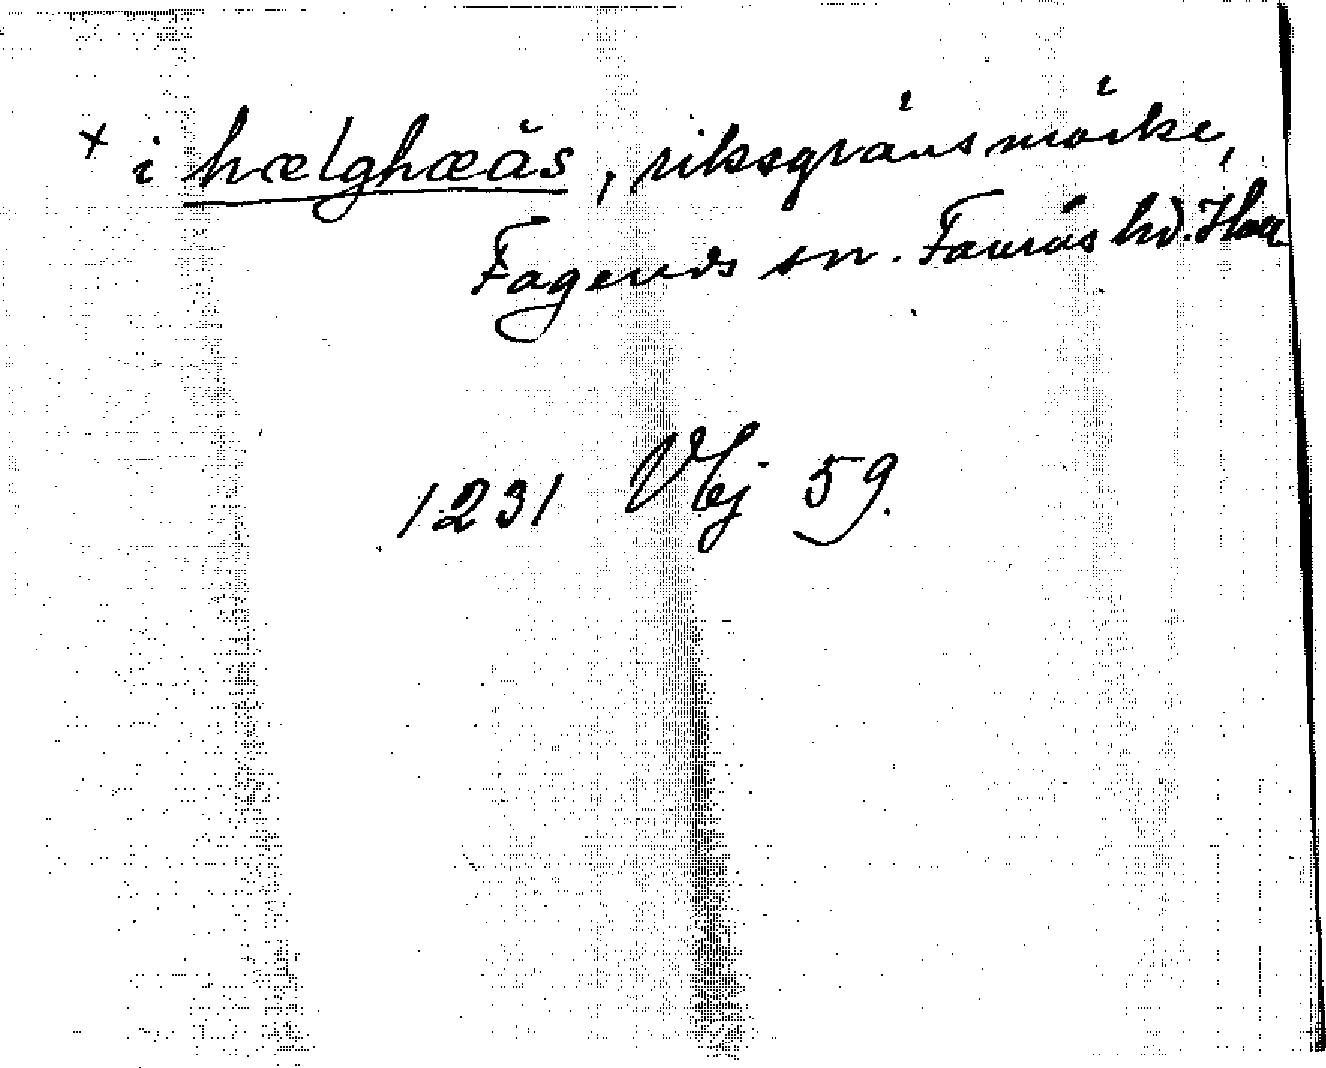 + i hælghæås, riksgränsmärke,
Fagereds sn. Faurås hd. Hall
1231 VJj 59.